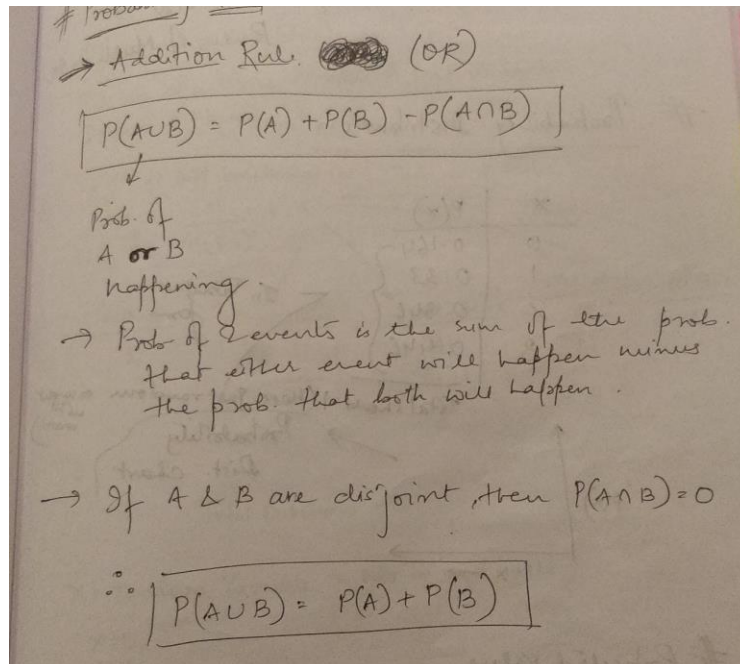 → Addition Rule. (OR)
P(A∪B) = P(A) + P(B) - P(A∩B)
Prob. of
A or B
happening.
→ Prob of 2 events is the sum of the prob.
that either event will happen minus
the prob. that both will happen.
→ If A & B are disjoint, then P(A∩B) = 0
∴ P(A∪B) = P(A) + P(B)